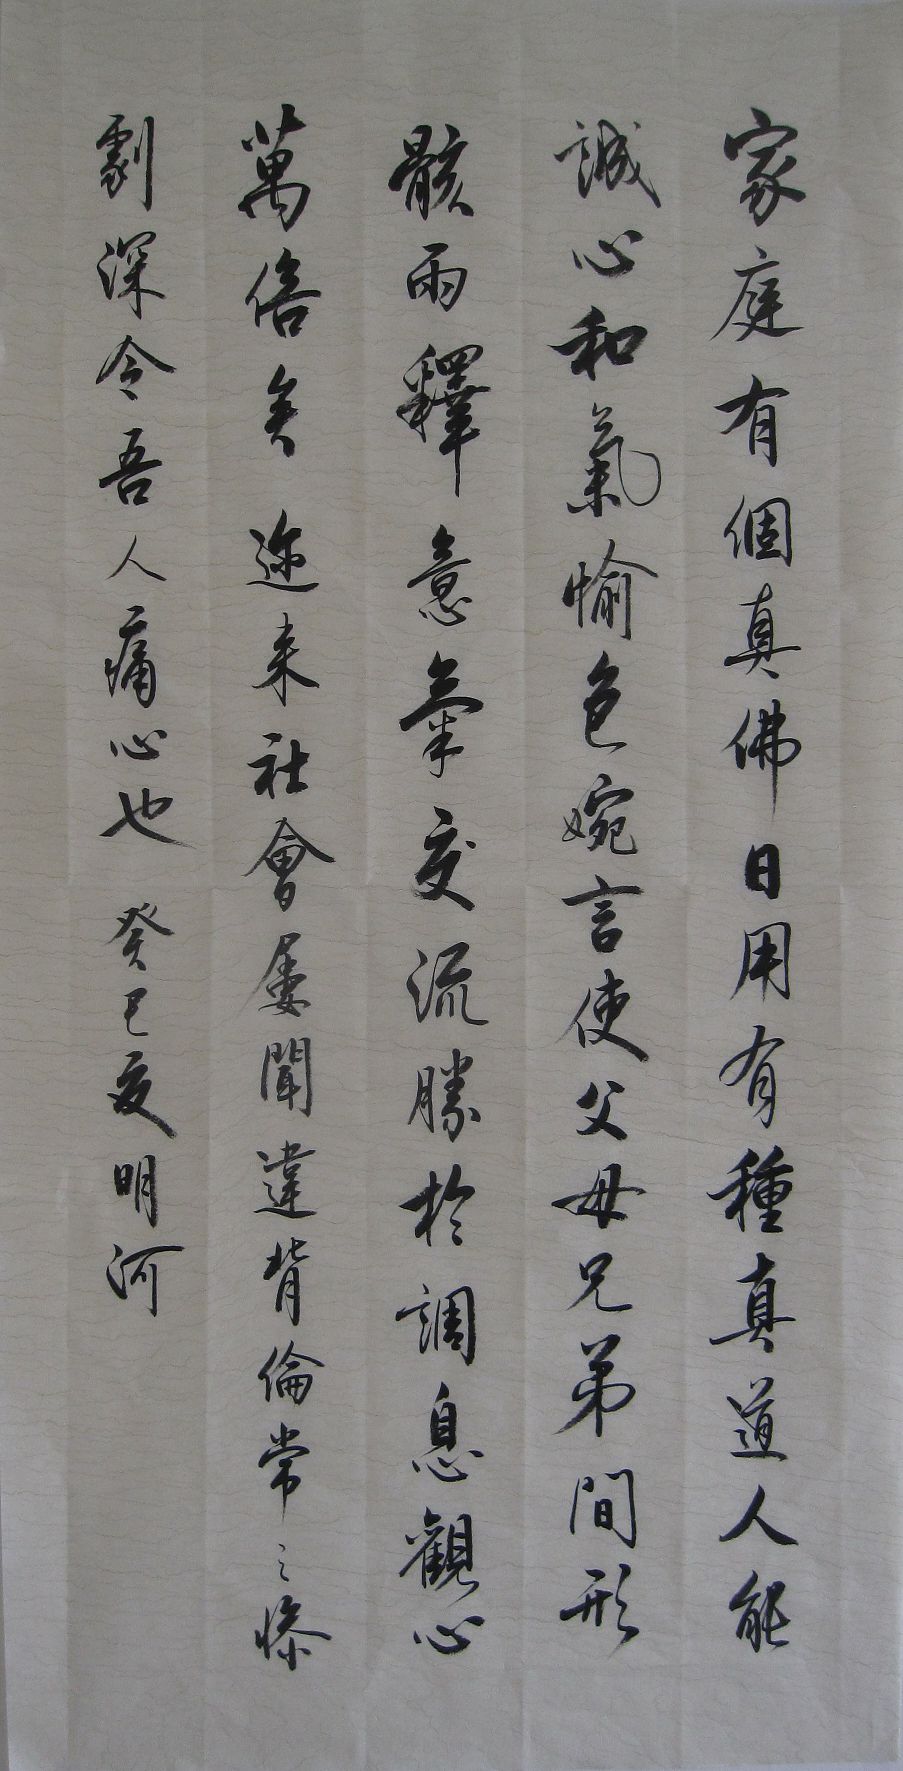 家庭有個真佛日用有種真道人能
誠心和氣愉色婉言使父母兄弟間形
骸兩釋意氣交流勝於調息觀心
萬倍矣迩来社會屡聞違背倫常之慘
劇深令吾人痛心也癸巳夏明河